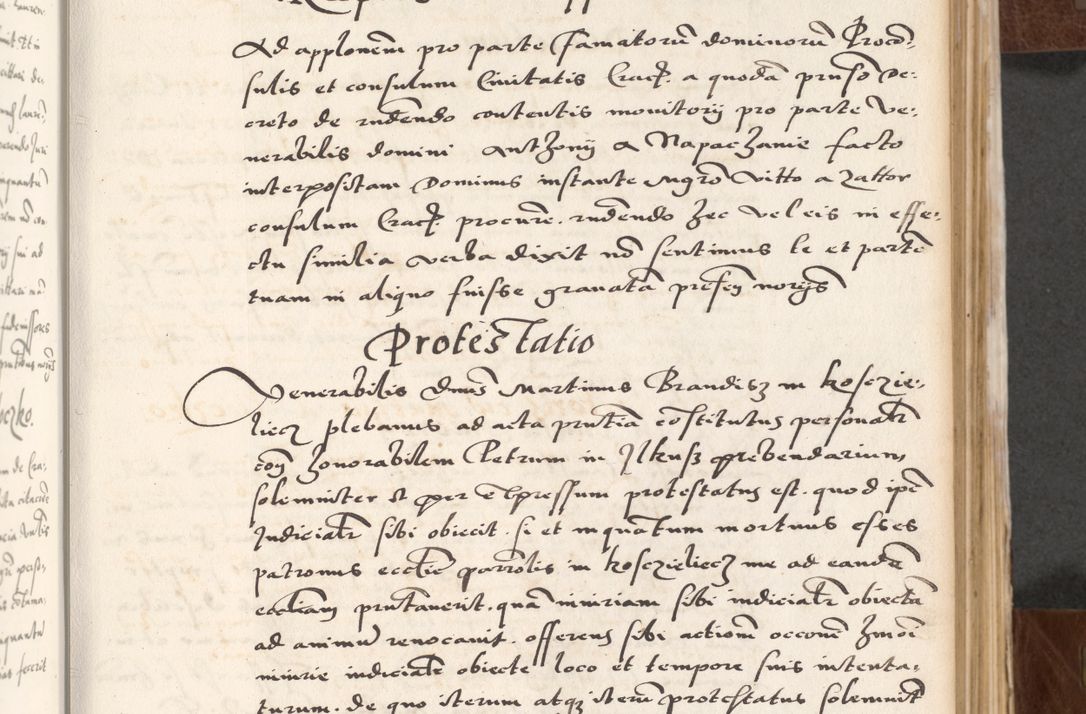 Ad applonem pro parte famatorum dominorum Procon
sulis et consulum Civitatis Crac. a quodam pnso De:
creto de rndendo contentis monitorij pro parte Ve:
nerabilis domini Anthonij a Napachanie facto
interpositam Dominus instante Mgro Vitto a Zattor
consulum Crac. procure. rndendo hec vel eis in effe:
ctu similia verba dixit non sentimus le et parte
tuam in aliquo fuisse gravatam
Protestatio
Venerabilis dnus Martinus Brandisz in Kosczie:
liecz plebanus ad acta pntia constitutus personalr
honorabilem Petrum in Ilkusz prebendarium
solemniter et per expressum protestatus est. quod ipse
Judicialr sibi obiecit. si et inquantum mortuus esses
patronus ecclie parrolis in Kosczieliecz me ad eandem
eccliam pntaverit. quam iniuriam sibi iudicialr obiecta
ad animum revocavit. offerens sibi actionem occone hmoi
iniurie iudicialr obiecte loco et tempore suis intenta:
turum. de quo iterum atque iterum protestatus solemnit